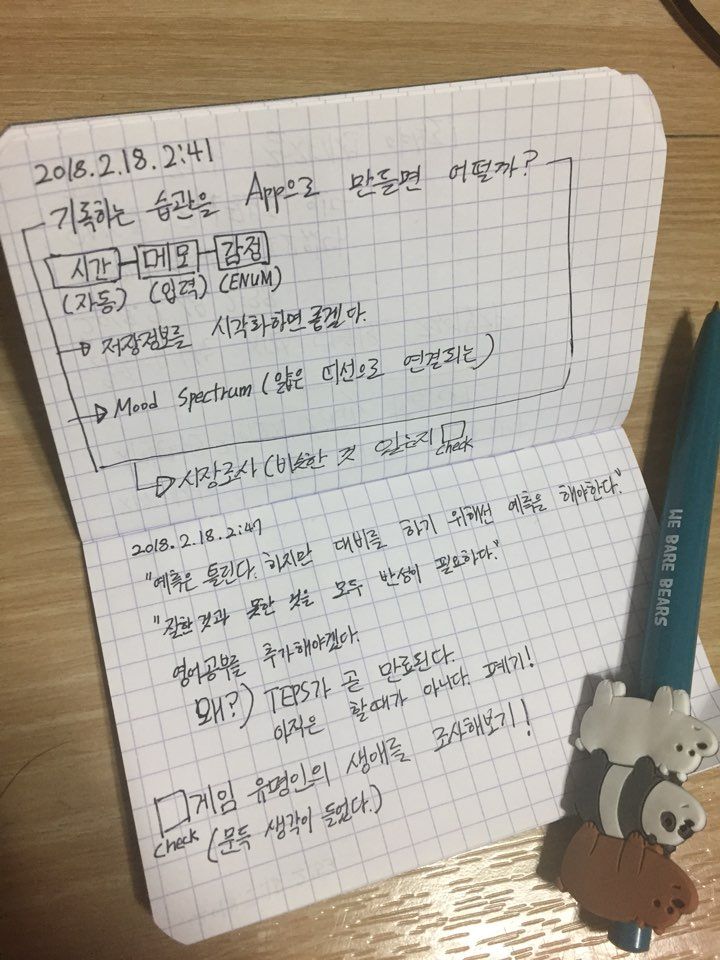 2018.2.18. 2:41
기록하는 습관을 App으로 만들면 어떨까?
시간 메모 감정
(자동) (입력) (ENUM)
저장정보를 시각화하면 좋겠다.
Mood Spectrum (얇은 띠선으로 연결되는)
시장조사 (비슷한 것 있는지
check
2018.2.18. 2:47
"예측은 틀린다. 하지만 대비를 하기 위해선 예측을 해야한다."
"잘한것과 못한 것을 모두 반성이 필요하다."
영어공부를 추가해야겠다.
왜?) TEPS가 곧 만료된다.
아직은 할때가 아니다. 폐기!
게임 유명인의 생애를 조사해보기!
check (문득 생각이 들었다.)
WE BARE BEARS